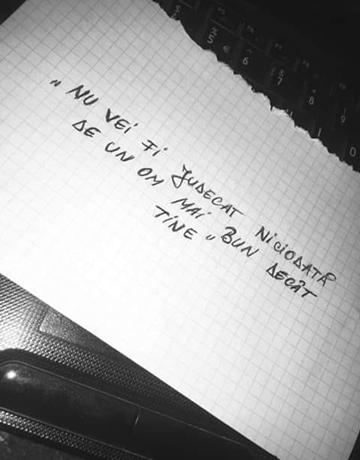 „ NU VEi Fi JUDECAT NiCiODATĂ
DE UN OM MAi BUN DECÂT
TiNE "
5 € 6 7 8 9 0